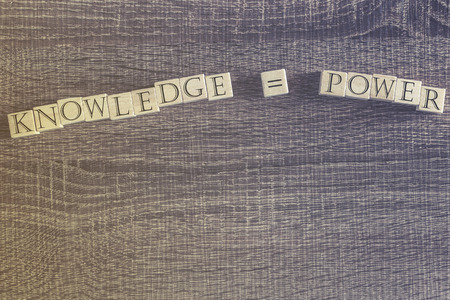 KNOWLEDGE = POWER